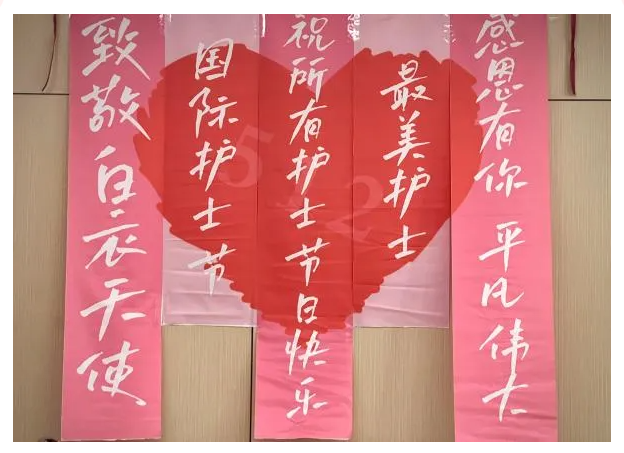 致敬白衣天使
国际护士节
祝所有护士节日快乐
最美护士
感恩有你 平凡伟大
512